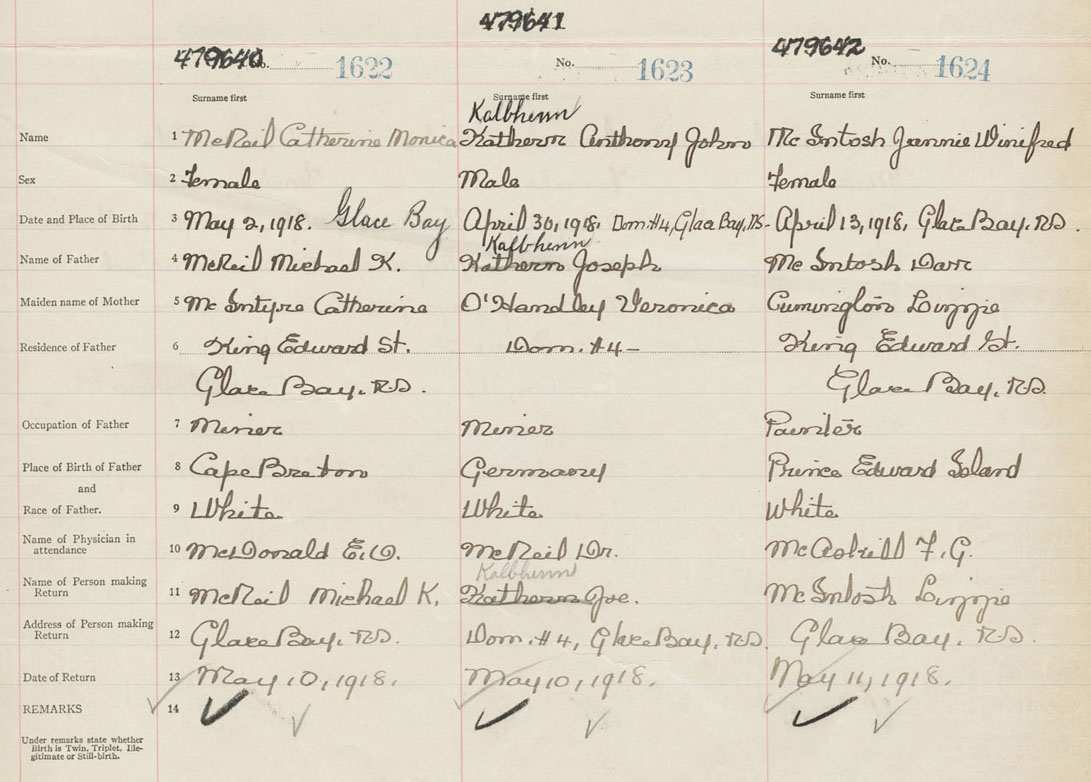 479640 479641 479642
No. 1622 No. 1623 No. 1624
Surname first Surname first Surname first
Kalbhenn
Name 1 McNeil Catherine Monica Kathern Anthony John Mc Intosh Jannie Winifred
Sex 2 Female Male Female
Date and Place of Birth 3 May 2, 1918. Glace Bay April 30, 1918. Dom. #4, Glace Bay, N.S. April 13, 1918, Glace Bay, N.S.
Kalbhenn
Name of Father 4 McNeil Michael K. Kathern Joseph Mc Intosh Dan
Maiden name of Mother 5 Mc Intyre Catherine O'Handley Veronica Lizzie
Residence of Father 6 King Edward St. Dom. #4 - King Edward St.
Glace Bay, N.S. Glace Bay, N.S.
Occupation of Father 7 Miner Miner Painter
Place of Birth of Father 8 Cape Breton Germany Prince Edward Island
and
Race of Father. 9 White White White
Name of Physician in
attendance 10 McDonald E.O. McNeil Dr. McAskill F. G.
Kalbhenn
Name of Person making
Return 11 McNeil Michael K. Kathern Joe. Mc Intosh Lizzie
Address of Person making
Return 12 Glace Bay, N.S. Dom. #4, Glace Bay, N.S. Glace Bay, N.S.
Date of Return 13 May 10, 1918. May 10, 1918. May 11, 1918.
REMARKS 14
Under remarks state whether
Birth is Twin, Triplet, Ille-
gitimate or Still-birth.